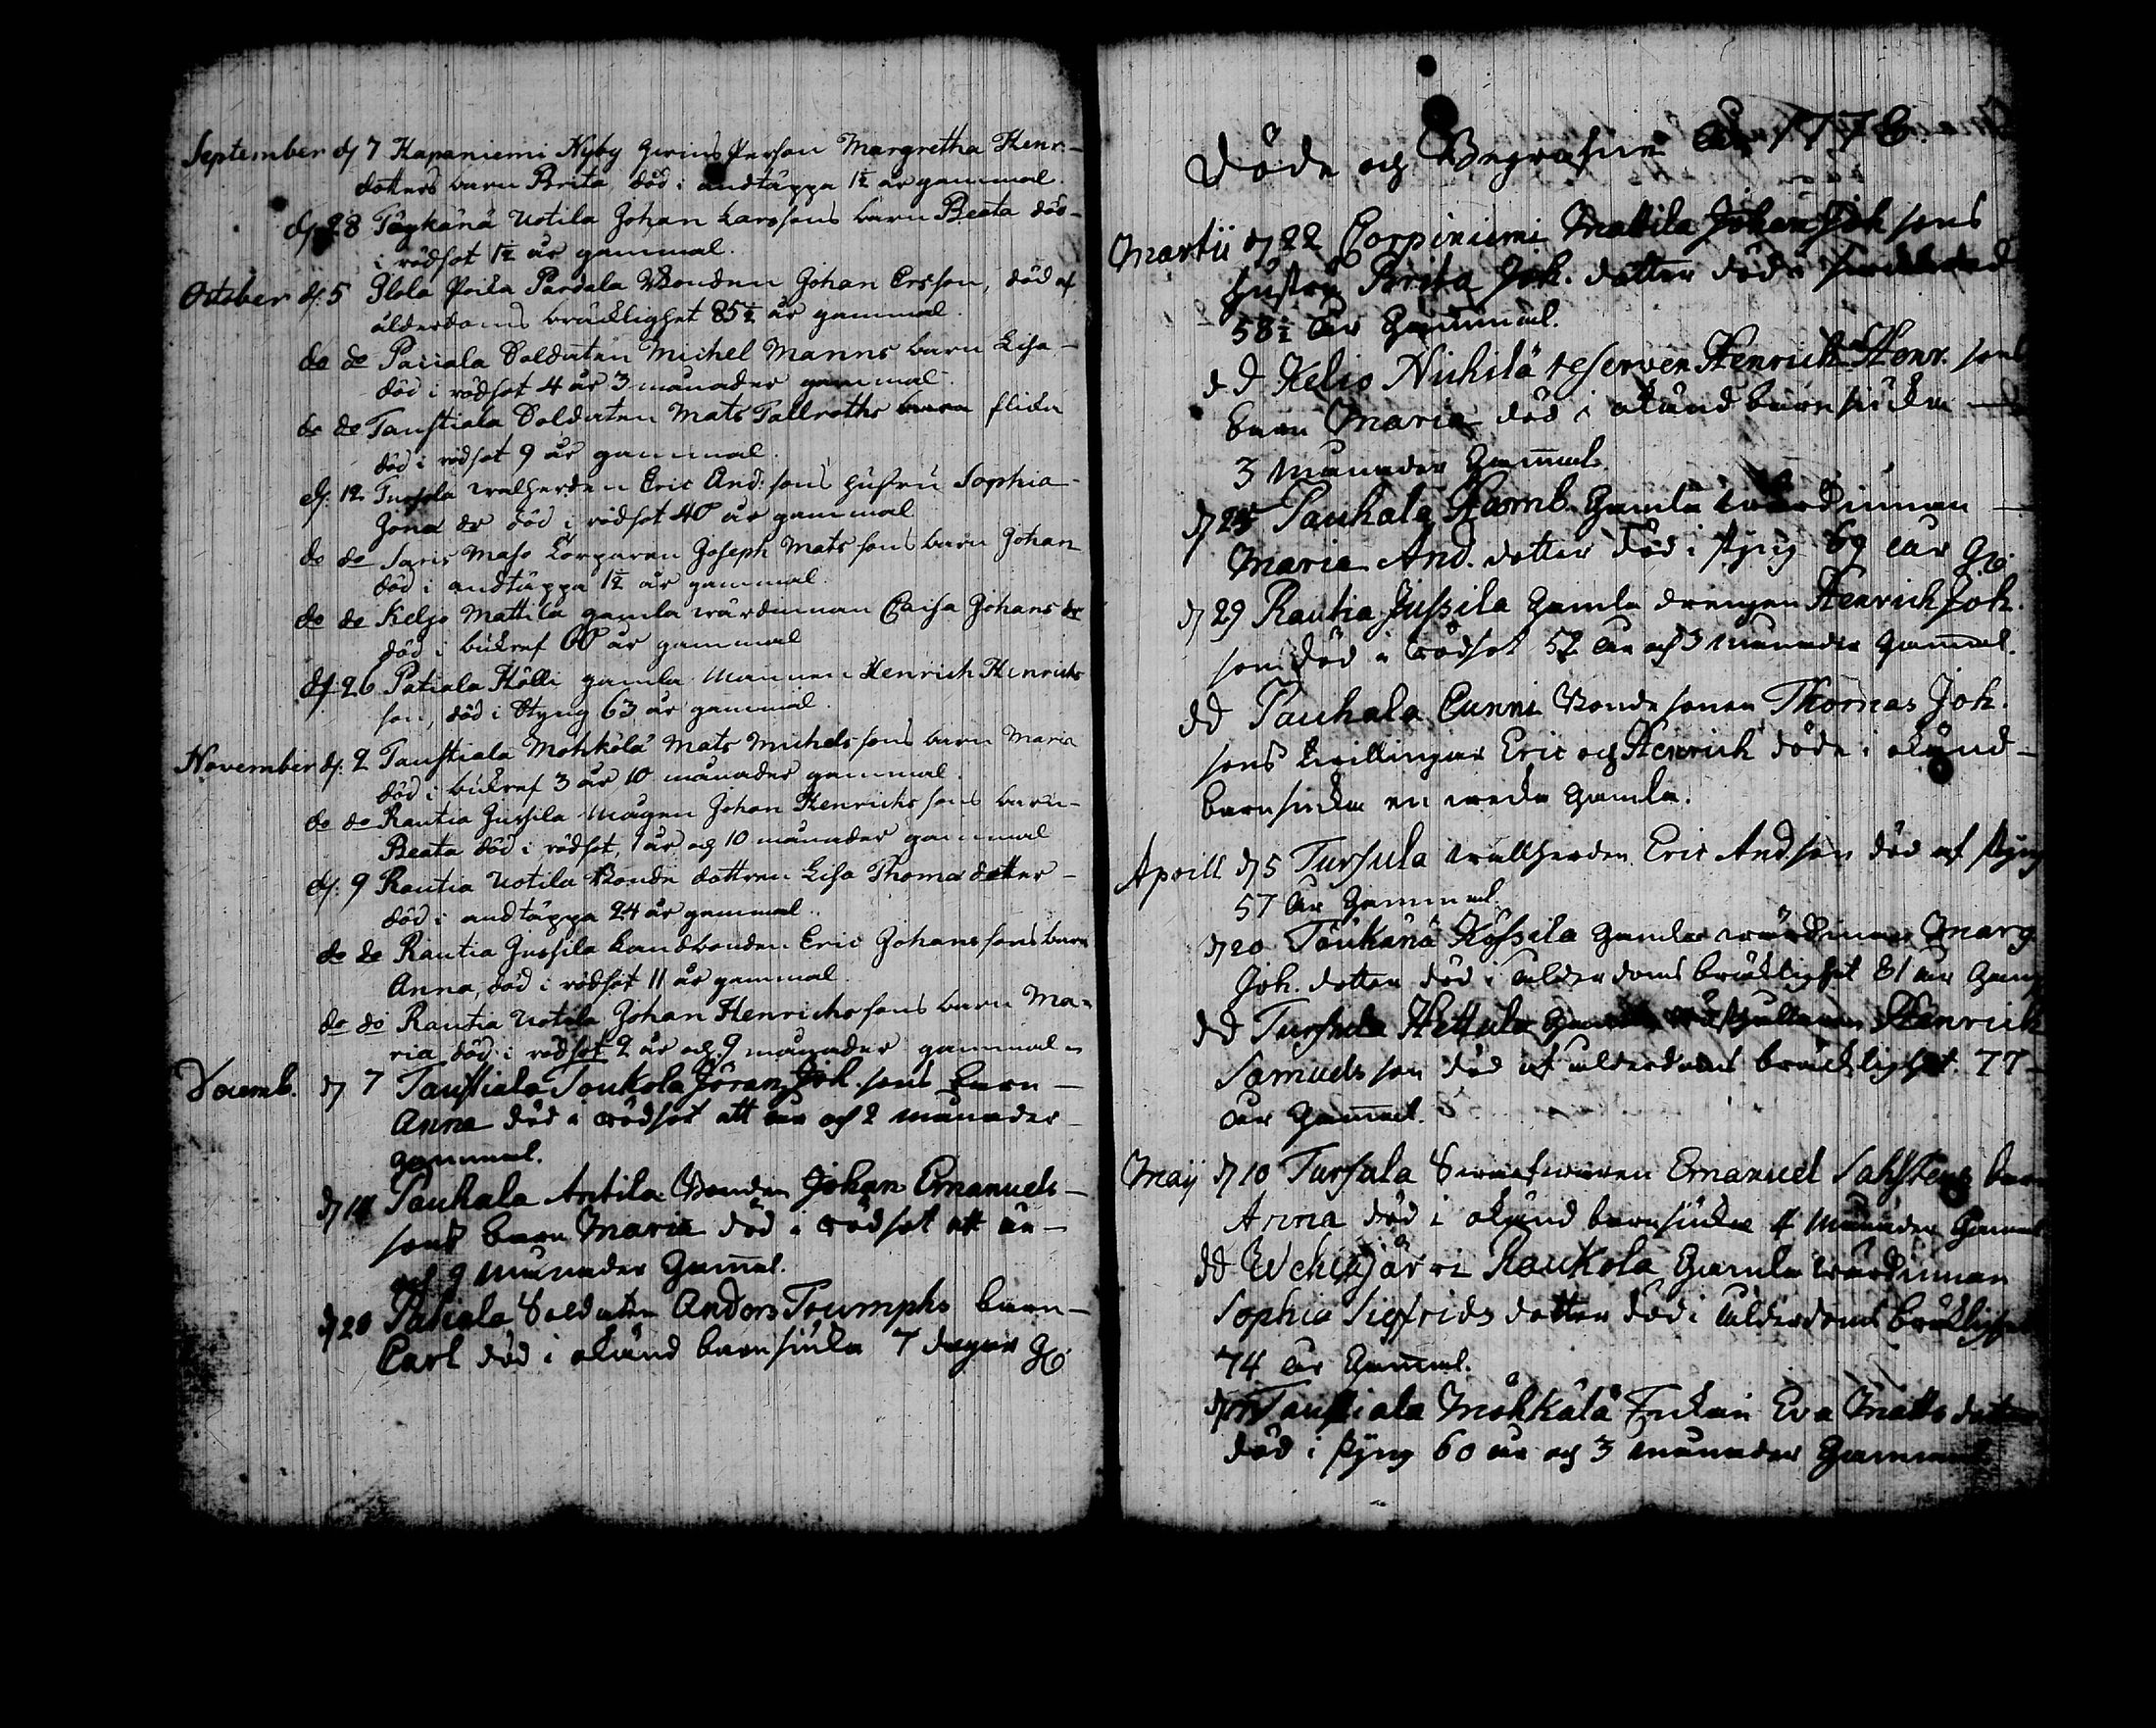 September d 7 Kapaniemi Nyby Person Margretha Henr-
dotters barn Brita död i andtäppa 1½ år gammal
d 28 Töykänä Uotila Johan Larssons barn Beata död
i rödsot 1½ år gammal.
October d. 5 Ylola Poika Pardala Bonden Johan Ersson, död af
ålderdoms bräcklighet 85½ år gammal.
do do Paciala Soldaten Michel Manns barn Lisa
död i rödsot 4 år 3 månader gammal.
do do Taustiala Soldaten Mats Tallroths barn flicka
död i rödsot 9 år gammal.
d. 12 Tursola walherden Eric And: sons hustru Sophia
Jona dr död i rödsot 40 år gammal
do do Saris Maso Torparen Joseph Mats sons barn Johan
död i andtäppa 1½ år gammal.
do do Keljo Mattila gamla wärdinnan Caisa Johans dr
död i bukref 60 år gammal
d. 26 Patiala Hölli gamla mannen Henrich Henrichs
son, död i Styng 63 år gammal.
November d. 2 Taustiala Mohkölä Mats Michelssons barn Maria
död i bukref 3 år 10 månader gammal.
do do Rautia Jussila mågen Johan Henrichs sons barn
Beata död i rödsot, 1 år og 10 månader gammal
d. 9 Rautia Uotila Bonde dottren Lisa Thomas dotter
död i andtäppa 24 år gammal.
do do Rautia Jussila Landbonden Eric Johans sons barn
Anna, död i rödsot 11 år gammal.
do do Rautia Uotola Johan Henrichssons barn Ma-
ria död i rödsot 2 år och 9 månader gammal
Decemb. d 7 Taustiala Toukola Jöran Joh. sons barn
Anna död i rödsot ett år och 2 månader
gammal.
d 14 Pauhala Antila Bonden Johan Emanuels
sons barn Maria död i rödsot ett år
och 9 månader Gammal.
d 20 Patiala Soldaten Anders Trumphs barn
Carl död i okänd barnsiuka 7 dagar
Döde og Begrafne År 1778.
Martii d 22 Corpiniemi Mattila Johan Joh sons
hustru Brita Joh. dotter död i
58½ år Gammal.
d d Kelio Nichilä reserven Henrich Henr. sons
barn Maria död i okänd barnsiuka
3 månader Gammal.
d 25 Pauhala Gamla wärdinnan
Maria And. dotter död i styng 69 år
d 29 Rautia Jussila Gamla drengen Henrich Joh.
son död i rödsot 52 år och 3 månader Gammal.
d d Pauhala Cunni Bonde sonen Thomas Joh.
sons twillingar Eric och Henrich döde i okänd
barnsiuka en weka Gamla.
Aprill d 5 Tursula wallherden Eric And.son död af styng
57 år Gammal.
d 20 Töukänä Kyssila Gamla wärdinnan Marg.
Joh. dotter död i ålderdoms bräcklighet 81 år Gam
d d Tursula Hettula Henrich
Samuels son död af ålderdoms bräcklighet 77
år Gammal.
Maij d 10 Tursula Emanuel Sahlstens barn
Anna död i okänd barnsiuka 4 månader Gammal
d d Wehkajärvi Raukola Gamla wärdinnan
Sophia Sigfrids dotter död i ålderdoms bräklighet
74 år Gammal.
Taustiala Möhkälä Enkan Eva Matts dotter
död i styng 60 år och 3 månader Gammal